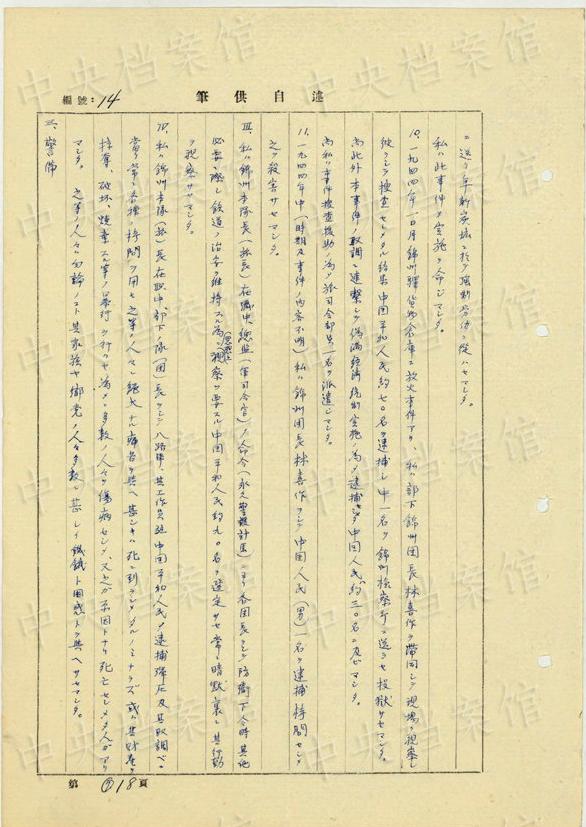 編號：14
述自供筆
ニ送リ阜新炭坑ニ於テ強制労働ニ従ハセマシタ。
私ハ此事件ノ実施ヲ命ジマシタ。
10、一九四四年一〇月錦州駅貨物倉庫ニ放火事件アリ、私ハ部下錦州団長林喜作ヲ帯同シテ現場ヲ視察シ
彼ヲシテ捜査セシメタル結果中国平和人民約七〇名ヲ逮捕シ中一名ヲ錦州検察庁ニ送ラセ投獄サセマシタ。
尚此外本事件ノ取調ニ連繋シテ偽満経済統制実施ノ為メ逮捕セシ中国人民ハ約三〇名ニ及ビマシタ。
尚私ハ事件捜査援助ノ為メ派司令部員一名ヲ派遣シマシタ。
11、一九四四年中（時期及事件ノ内容不明）私ハ錦州団長林喜作ヲシテ中国人民（男）一名ヲ逮捕拷問セシメ
之ヲ殺害サセマシタ。
Ⅲ、私ハ錦州本隊長（旅長）在職中、総監（軍司令官）ノ命令（永久警護計画）ニヨリ各団長ヲシテ防衛下令時其他
必要ニ際シ鉄道ノ治安ヲ維持スル為視察ヲ要スル中国平和人民約九〇名ヲ選定サセ常ニ暗默裏ニ其行動
ヲ視察サセマシタ。
Ⅳ、私ハ錦州本隊（旅）長在職中、部下ノ隊（団）長ヲシテ八路軍、其工作員並中国平和人民ノ逮捕弾圧及其取調ベニ
当リ常ニ各種ノ拷問ヲ用ヒ之等ノ人々ニ絶大ナル痛苦ヲ与ヘ甚シキハ死ニ到ラシメタルノミナラズ或ハ其財産ヲ
掠奪、破壊、焼棄スル等ノ暴行ヲ行ハセ為メニ多数ノ人々ヲ傷病セシメ、又之ガ原因トナリ死亡セシメタ人ガアリ
マシタ。之等ノ人々ハ勿論ノコト其家族ヤ郷党ノ人々多数ニ甚シイ飢餓ト困惑トヲ与ヘサセマシタ。
三、警備
第 18 頁
中央档案馆